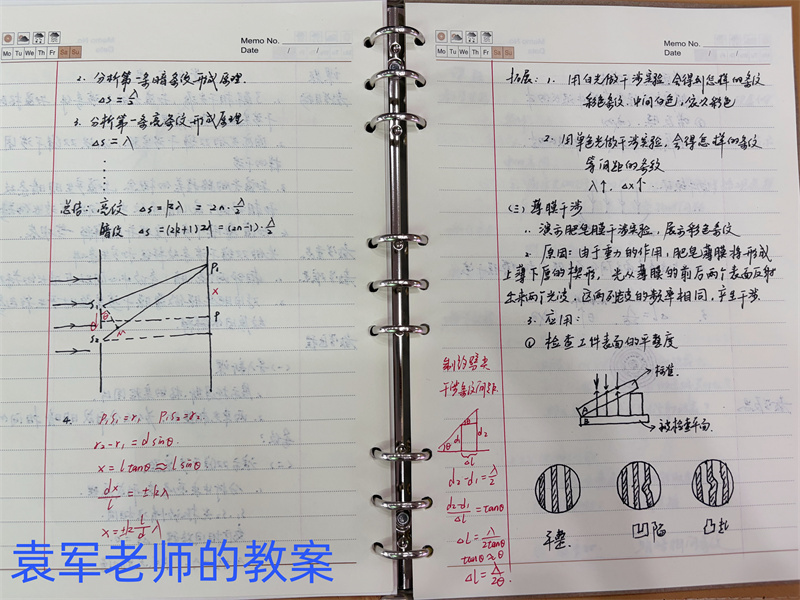 Memo No.
Mo Tu We Th Fr Sa Su
Date / /
2. 分析第一条暗条纹形成原理.
Δs = λ/2
3. 分析第一条亮条纹形成原理
Δs = λ
⋮
总结: 亮纹 Δs = kλ = 2n·λ/2
暗纹
= (2n-1)·λ/2
P₁
x
S₁
θ
P
θ
S₂
M
4. P₁S₁=r₁ P₁S₂=r₂
r₂-r₁=dsinθ.
x=ltanθ≈lsinθ
dx/l = ±kλ
x=±k l/d λ
袁军老师的教案
Memo No.
Mo Tu We Th Fr Sa Su
Date / /
拓展: 1. 用白光做干涉实验, 会得到怎样的条纹
彩色条纹. 中间白色, 依次彩色
2. 用单色光做干涉实验, 会得怎样的条纹
等间距的条纹
λ↑, Δx↑.
(三) 薄膜干涉
1. 演示肥皂膜干涉实验, 展示彩色条纹
2. 原因: 由于重力的作用, 肥皂薄膜将形成
上薄下厚的楔形. 光从薄膜的前后两个表面反射
出来两个光波, 这两列光波的频率相同, 产生干涉
3. 应用:
① 检查工件表面的平整度
标准.
A
B
被检查平面.
平整.
凹陷
凸起
干涉条纹间距.
θ
d₁
d₂
Δl
d₂-d₁=λ/2
d₂-d₁/Δl = tanθ
Δl = λ/2tanθ
tanθ≈θ
Δl = λ/2θ.